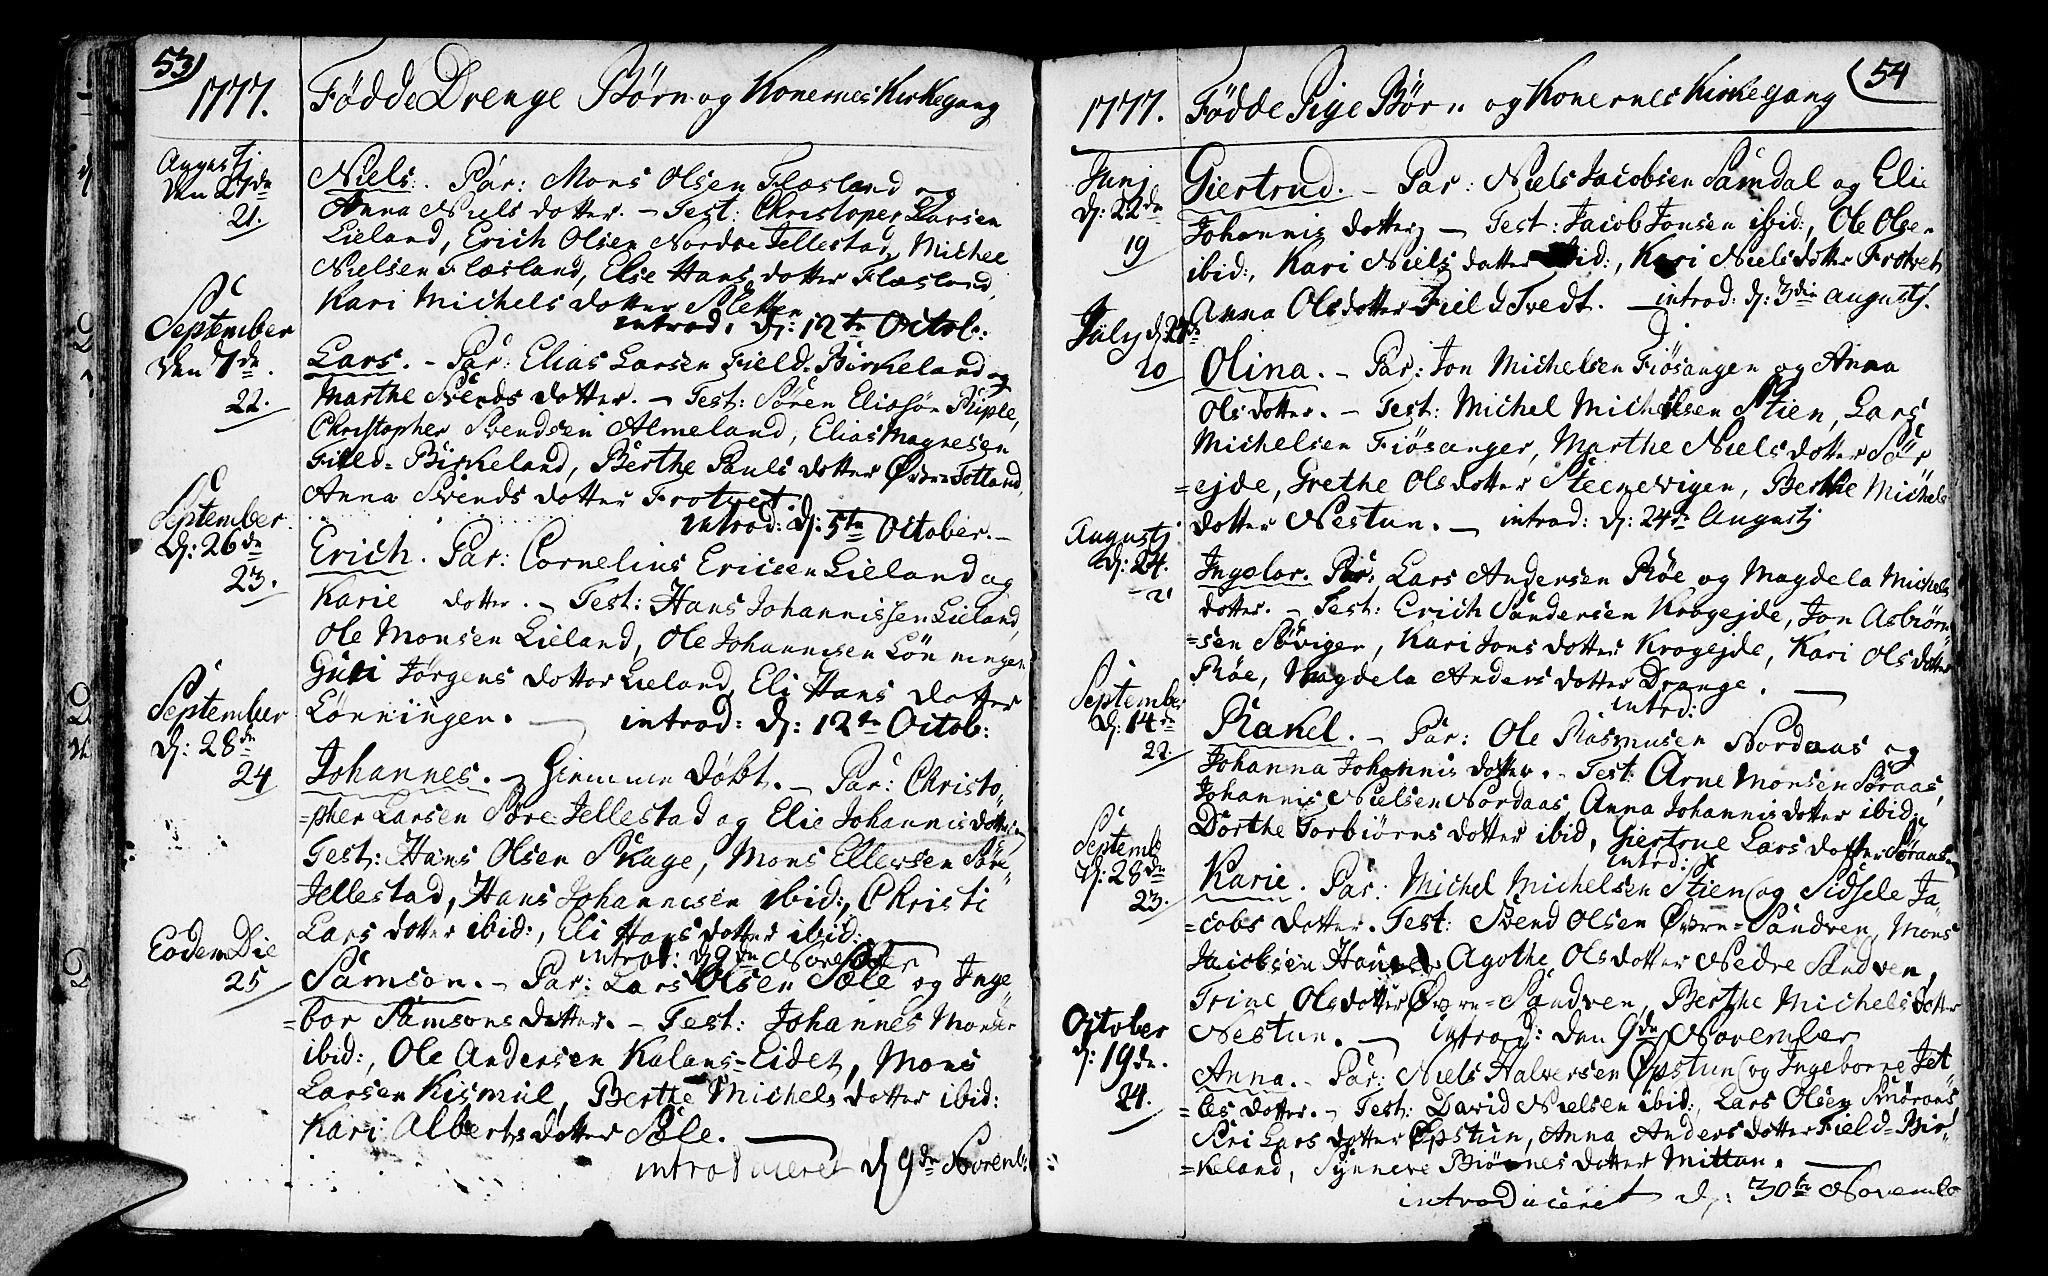 53)
1777. Fødde Drenge Børn og Konernes Kirkegang
Augustj
den 27de
21.
Niels. Par: Mons Olsen Flæsland og
Anna Niels dotter. – Test: Christoper Larsen
Lieland, Erich Olsen Nordre Jellestad, Michel
Nielsen Flæsland, Else Hans dotter Flæsland,
Kari Michels dotter Sletten
introd: d: 12te Octob:
September
den 7de.
22.
Lars. – Par: Elias Larsen Field-Birkeland og
Marthe Svends dotter. – Test: Sören Eliasön
Christopher Svendsen Almeland, Elias Magnesen
Field-Birkeland, Berthe Pauls dotter Øvre Totland,
Anna Svends dotter Frotvet.
introd: d: 5te October. –
September
d: 26de
23.
Erich. Par: Cornelius Ericsen Lieland og
Karie dotter. – Test: Hans Johannissen Lieland,
Ole Monsen Lieland, Ole Johannesen Lönningen
Guri Jørgens dotter Lieland, Eli Hans dotter
Lønningen. – introd: d: 12te Octob:
September
d: 28de
24
Johannes. – Hiemme døbt. – Par: Christo,,
=pher Larsen Søre Jellestad og Elie Johannis dotter
Test: Hans Olsen Skage, Mons Ellersen Søre
Jellestad, Hans Johannesen ibid:, Christi
Lars dotter ibid:, Eli Hans dotter ibid:
introd: d 9de November
Eodem Die
25
Samson. – Par: Lars Olsen Sæle og Inge
=bor Samsons dotter. – Test: Johannes Monsen
ibid:, Ole Andersen Kalans=Eidet, Mons
Larsen Kismul, Berthe Michels dotter ibid:
Kari Alberts dotter Sæle. –
introduceret d 9de Novemb:
(54
1777. Fødde Pige Børn og Konernes Kirkegang
Junj
d: 22de
19
Giertrud. – Par: Niels Jacobsen Samdal og Elie
Johannis dotter – Test: Jacob Jonsen ibid:, Ole Olsen
ibid:, Kari Niels dotter ibid:, Kari Niels dotter Frotvet
Anna Ols dotter Field Tvedt. – introd: d: 3die augustj.
July d 20de
20
Olina. – Par: Jon Michelsen Fiøsangen og Anna
Ols dotter. – Test: Michel Michelsen Stien, Lars
Michelsen Fiøsanger, Marthe Niels dotter Sör
=ejde, Grethe Ols dotter Steenevigen, Berthe Michels
dotter Nestun. – introd: d: 24de Augustj
Augustj
d: 24.
21
Ingebor. Par: Lars Andersen Røe og Magdela Michels
dotter. – Test: Erich Sandersen Krogejde, Jon Asbiørn
=sen Søviger, Kari Jons dotter Krogejde, Kari Ols dotter
Røe, Magdela Anders dotter Drange. –
introd:
September
d: 14de
22.
Rakel. – Par: Ole Rasmusen Nordaas og
Johanna Johannis dotter. – Test: Arne Monsen Søraas,
Johannis Nielsen Nordaas, Anna Johannis dotter ibid,
Dorthe Torbiørns dotter ibid, Giertrue Lars dotter Søraas
introd:
Septemb
d: 28de
23.
Karie. Par: Michel Michelsen Stien og Sidsele Ja,,
=cobs dotter. Test: Svend Olsen Øvre=Sandven, Mons
Jacobsen Agothe Ols dotter Nedre Sandven,
Trine Ols dotter Øvre=Sandven, Berthe Michels dotter
Nestun. – Introd: den 9de November
October
d: 19de.
24.
Anna. – Par: Niels Halversen Øpstun og Ingeborre Jet
=les dotter. – Test: David Nielsen ibid:, Lars Olsen Smøraas
Siri Lars dotter Øpstun, Anna Anders dotter Field=Bir
=keland, Synneve Biørnes dotter Mittun. –
introduceret d: 30te Novemb